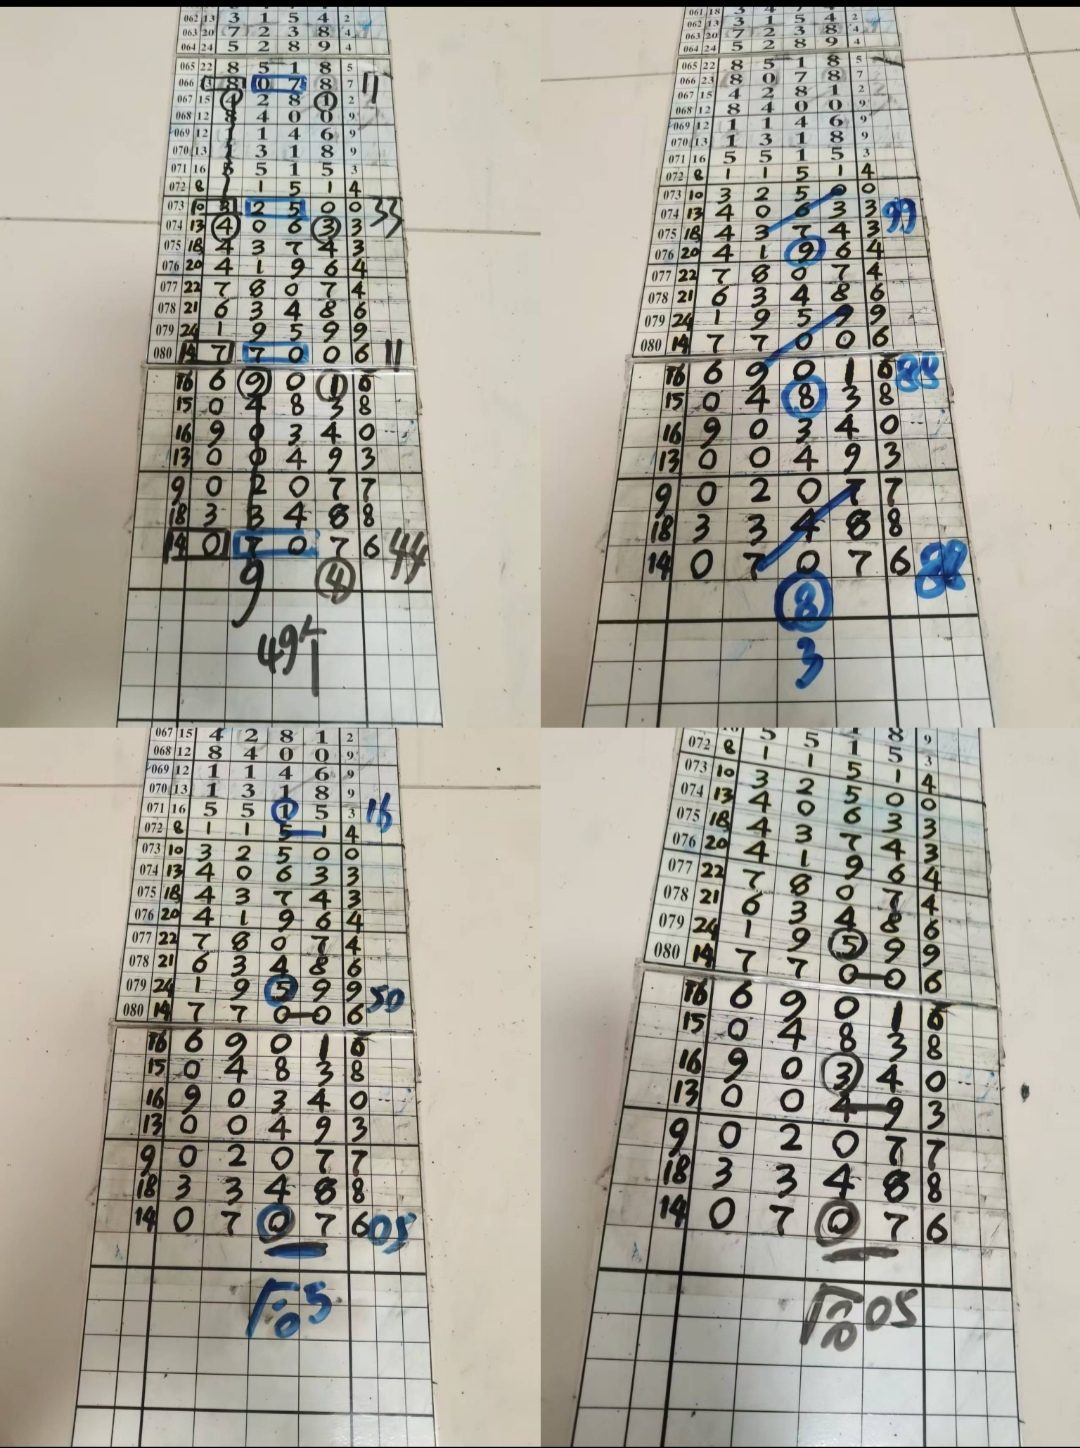 062 13 3 1 5 4 2
063 20 7 2 3 8 4
064 24 5 2 8 9 4
065 22 8 5 1 8 5
066 23 8 0 7 8 7 11
067 15 4 2 8 1 2
068 12 8 4 0 0 9
069 12 1 1 4 6 9
070 13 1 3 1 8 9
071 16 5 5 1 5 3
072 8 1 1 5 1 4
073 10 3 2 5 0 0 33
074 13 4 0 6 3 3
075 18 4 3 7 4 3
076 20 4 1 9 6 4
077 22 7 8 0 7 4
078 21 6 3 4 8 6
079 24 1 9 5 9 9
080 14 7 7 0 0 6 11
16 6 9 0 1 6
15 0 4 8 3 8
16 9 0 3 4 0
13 0 0 4 9 3
9 0 2 0 7 7
18 3 3 4 8 8
14 0 7 0 7 6 44
9 4
49
062 13 3 1 5 4 2
063 20 7 2 3 8 4
064 24 5 2 8 9 4
065 22 8 5 1 8 5
066 23 8 0 7 8 7
067 15 4 2 8 1 2
068 12 8 4 0 0 9
069 12 1 1 4 6 9
070 13 1 3 1 8 9
071 16 5 5 1 5 3
072 8 1 1 5 1 4
073 10 3 2 5 0 0
074 13 4 0 6 3 3 99
075 18 4 3 7 4 3
076 20 4 1 9 6 4
077 22 7 8 0 7 4
078 21 6 3 4 8 6
079 24 1 9 5 9 9
080 14 7 7 0 0 6
16 6 9 0 1 6 88
15 0 4 8 3 8
16 9 0 3 4 0
13 0 0 4 9 3
9 0 2 0 7 7
18 3 3 4 8 8
14 0 7 0 7 6 88
8
3
067 15 4 2 8 1 2
068 12 8 4 0 0 9
069 12 1 1 4 6 9
070 13 1 3 1 8 9
071 16 5 5 1 5 3
072 8 1 1 5 1 4
073 10 3 2 5 0 0
074 13 4 0 6 3 3
075 18 4 3 7 4 3
076 20 4 1 9 6 4
077 22 7 8 0 7 4
078 21 6 3 4 8 6
079 24 1 9 5 9 9 50
080 14 7 7 0 0 6
16 6 9 0 1 6
15 0 4 8 3 8
16 9 0 3 4 0
13 0 0 4 9 3
9 0 2 0 7 7
18 3 3 4 8 8
14 0 7 0 7 6 05
5
5 5 1 5 3
072 8 1 1 5 1 4
073 10 3 2 5 0 0
074 13 4 0 6 3 3
075 18 4 3 7 4 3
076 20 4 1 9 6 4
077 22 7 8 0 7 4
078 21 6 3 4 8 6
079 24 1 9 5 9 9
080 14 7 7 0 0 6
16 6 9 0 1 6
15 0 4 8 3 8
16 9 0 3 4 0
13 0 0 4 9 3
9 0 2 0 7 7
18 3 3 4 8 8
14 0 7 0 7 6
05